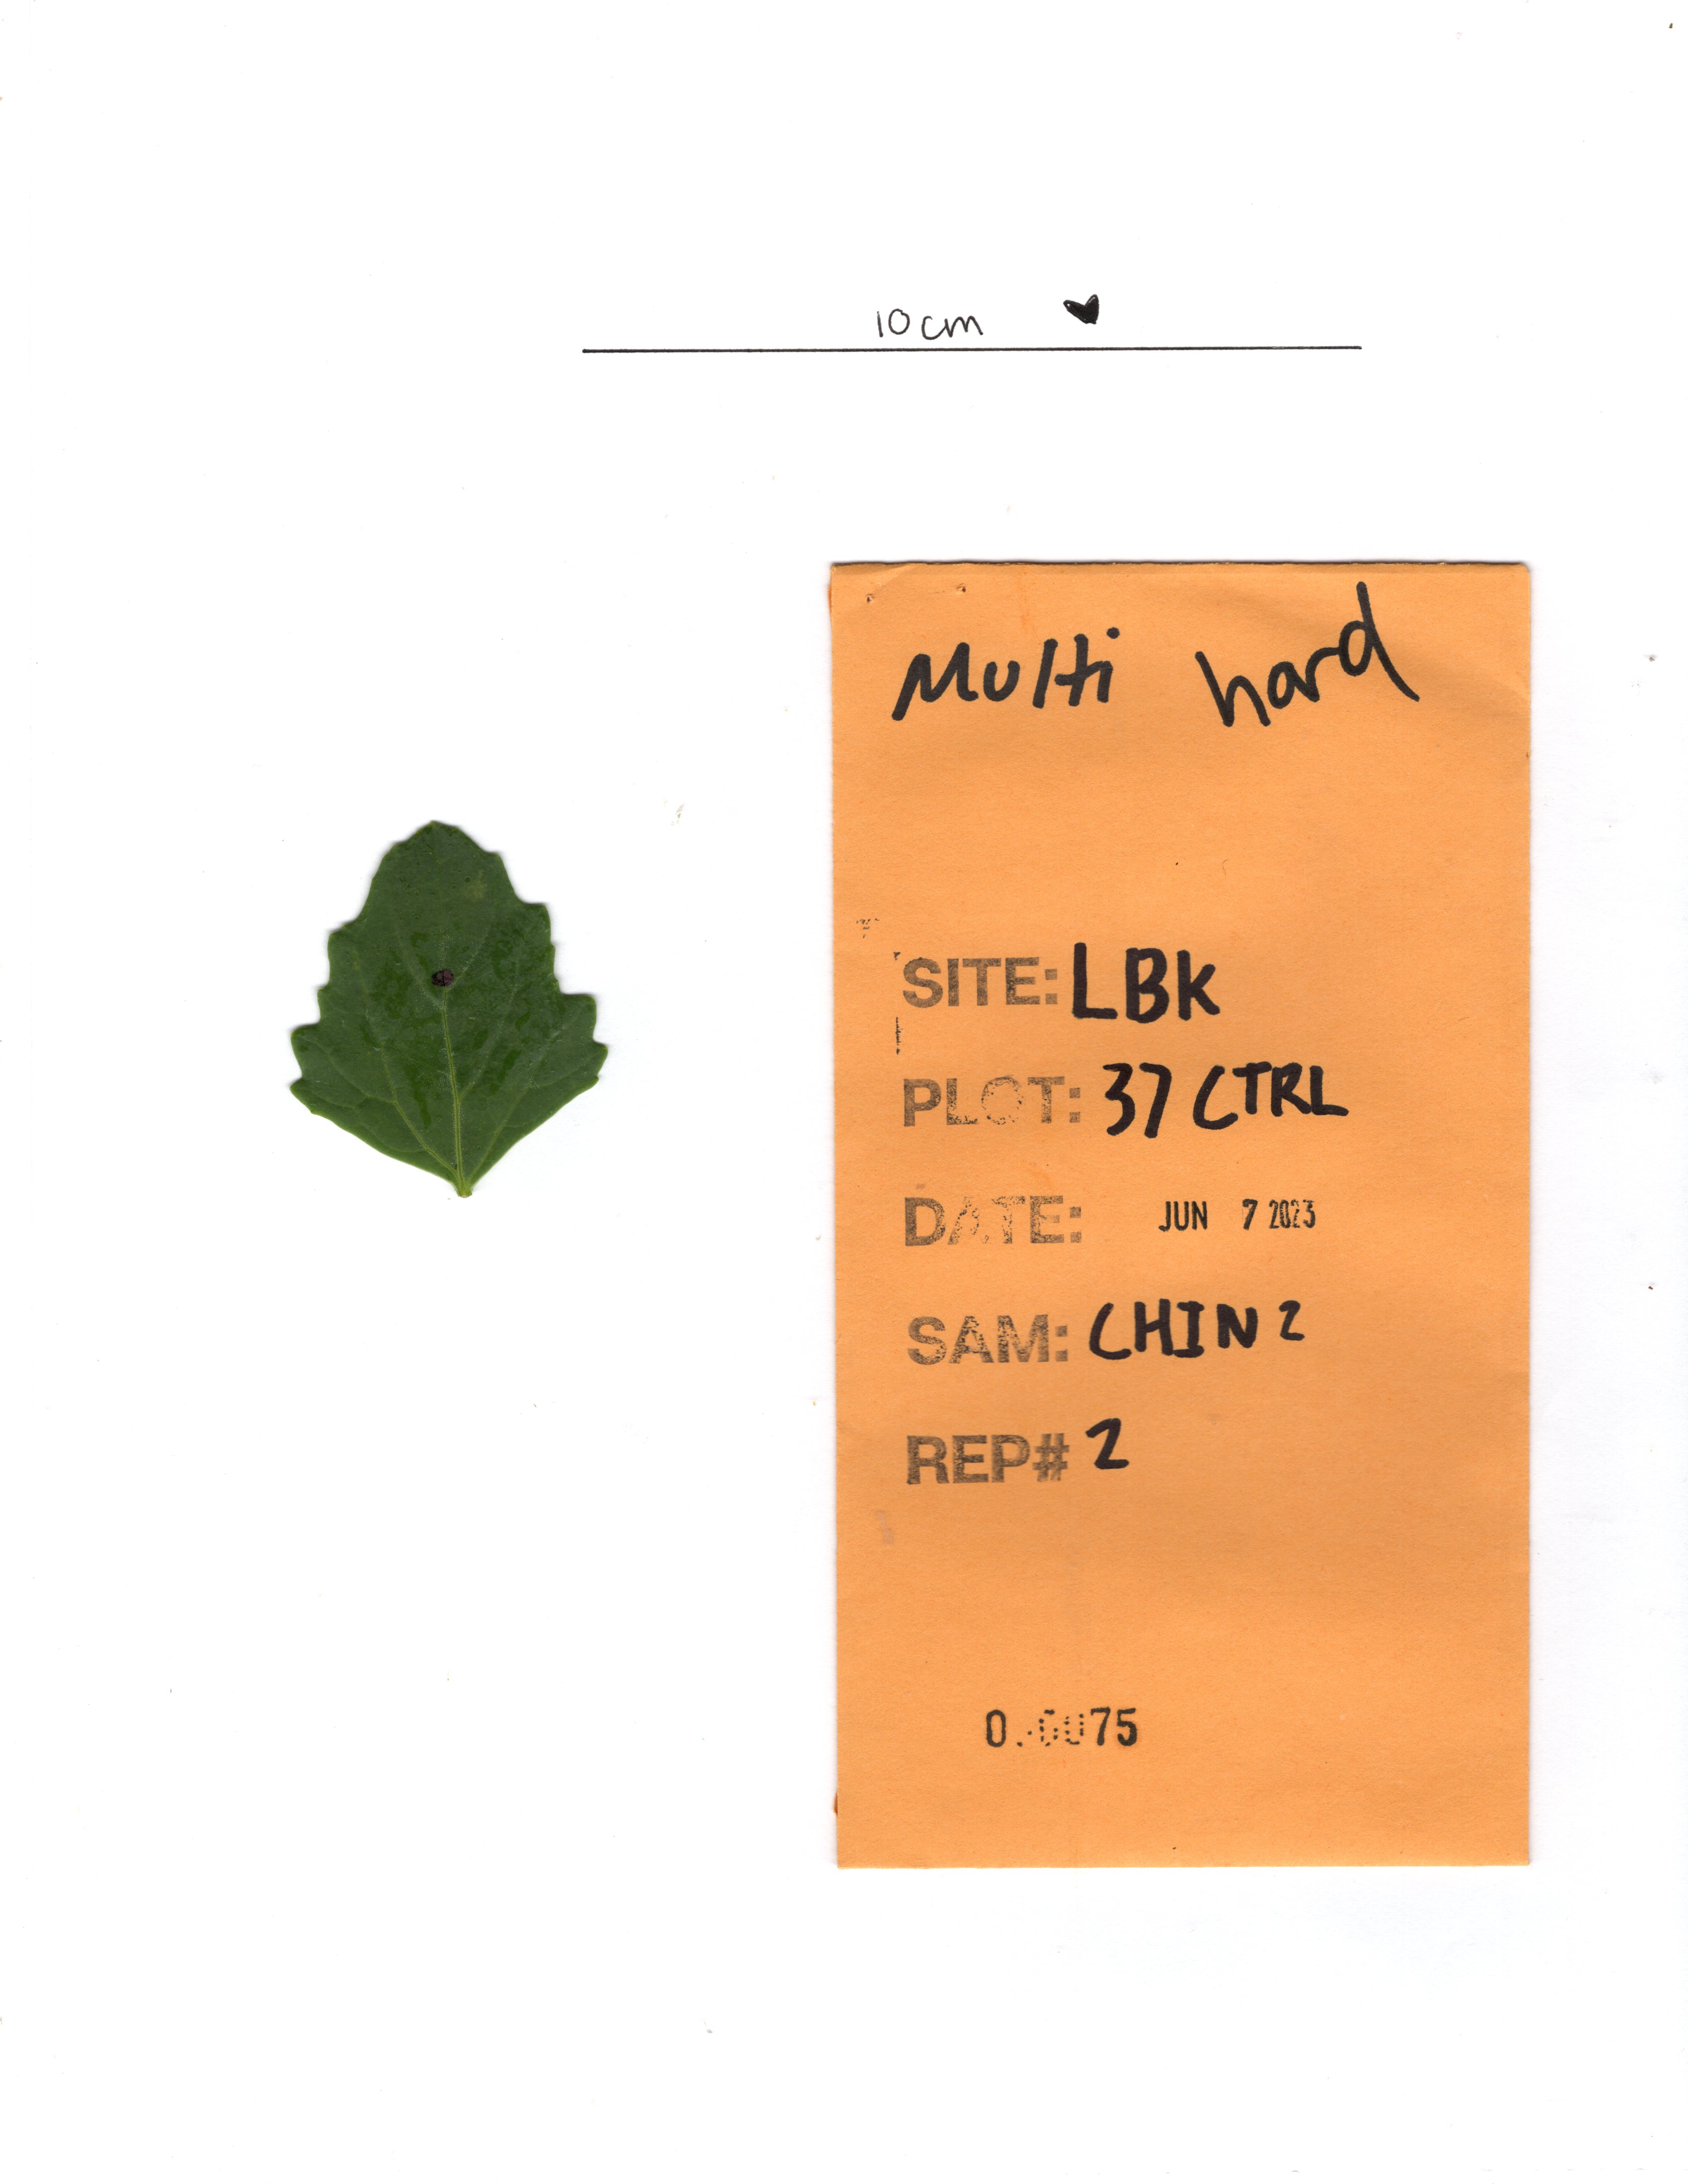 10cm
Multi hard
SITE: LBK
PLOT: 37 CTRL
DATE: JUN 7 2023
SAM: CHIN 2
REP# 2